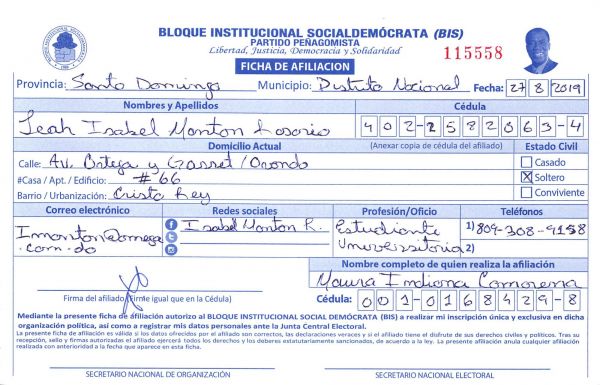 BLOQUE INSTITUCIONAL SOCIALDEMÓCRATA (BIS)
PARTIDO PEÑAGOMISTA
Libertad, Justicia, Democracia y Solidaridad
115558
FICHA DE AFILIACION
Provincia: Santo Domingo Municipio: Distrito Nacional Fecha: 27/8/2019
Nombres y Apellidos Cédula
Leah Isabel Monton Rosario 402-2582063-4
Domicilio Actual (Anexar copia de cédula del afiliado) Estado Civil
Calle: Av. Ortega y Gasset/Ovando Casado
#Casa / Apt. / Edificio: #66 X Soltero
Barrio / Urbanización: Cristo Rey Conviviente
Correo electrónico Redes sociales Profesión/Oficio Teléfonos
Imonton@omega Isabel Monton R. Estudiante 1) 809-308-9158
.com.do Universitaria 2)
Nombre completo de quien realiza la afiliación
Maura Indiana Camarena
Firma del afiliado (Firme igual que en la Cédula) Cédula: 001-0168429-8
Mediante la presente ficha de afiliación autorizo al BLOQUE INSTITUCIONAL SOCIAL DEMÓCRATA (BIS) a realizar mi inscripción única y exclusiva en dicha
organización política, así como a registrar mis datos personales ante la Junta Central Electoral.
La presente ficha de afiliación es válida si los datos ofrecidos por el afiliado son correctos, las declaraciones veraces y si el afiliado tiene el disfrute de sus derechos civiles y políticos. Tras su
recepción, sello y firmas autorizadas el afiliado ejercerá todos los derechos y los deberes estatutariamente sancionados, de acuerdo a la ley. La presente afiliación anula cualquier afiliación
realizada con anterioridad a la fecha que aparece en esta ficha.
SECRETARIO NACIONAL DE ORGANIZACIÓN SECRETARIO NACIONAL ELECTORAL